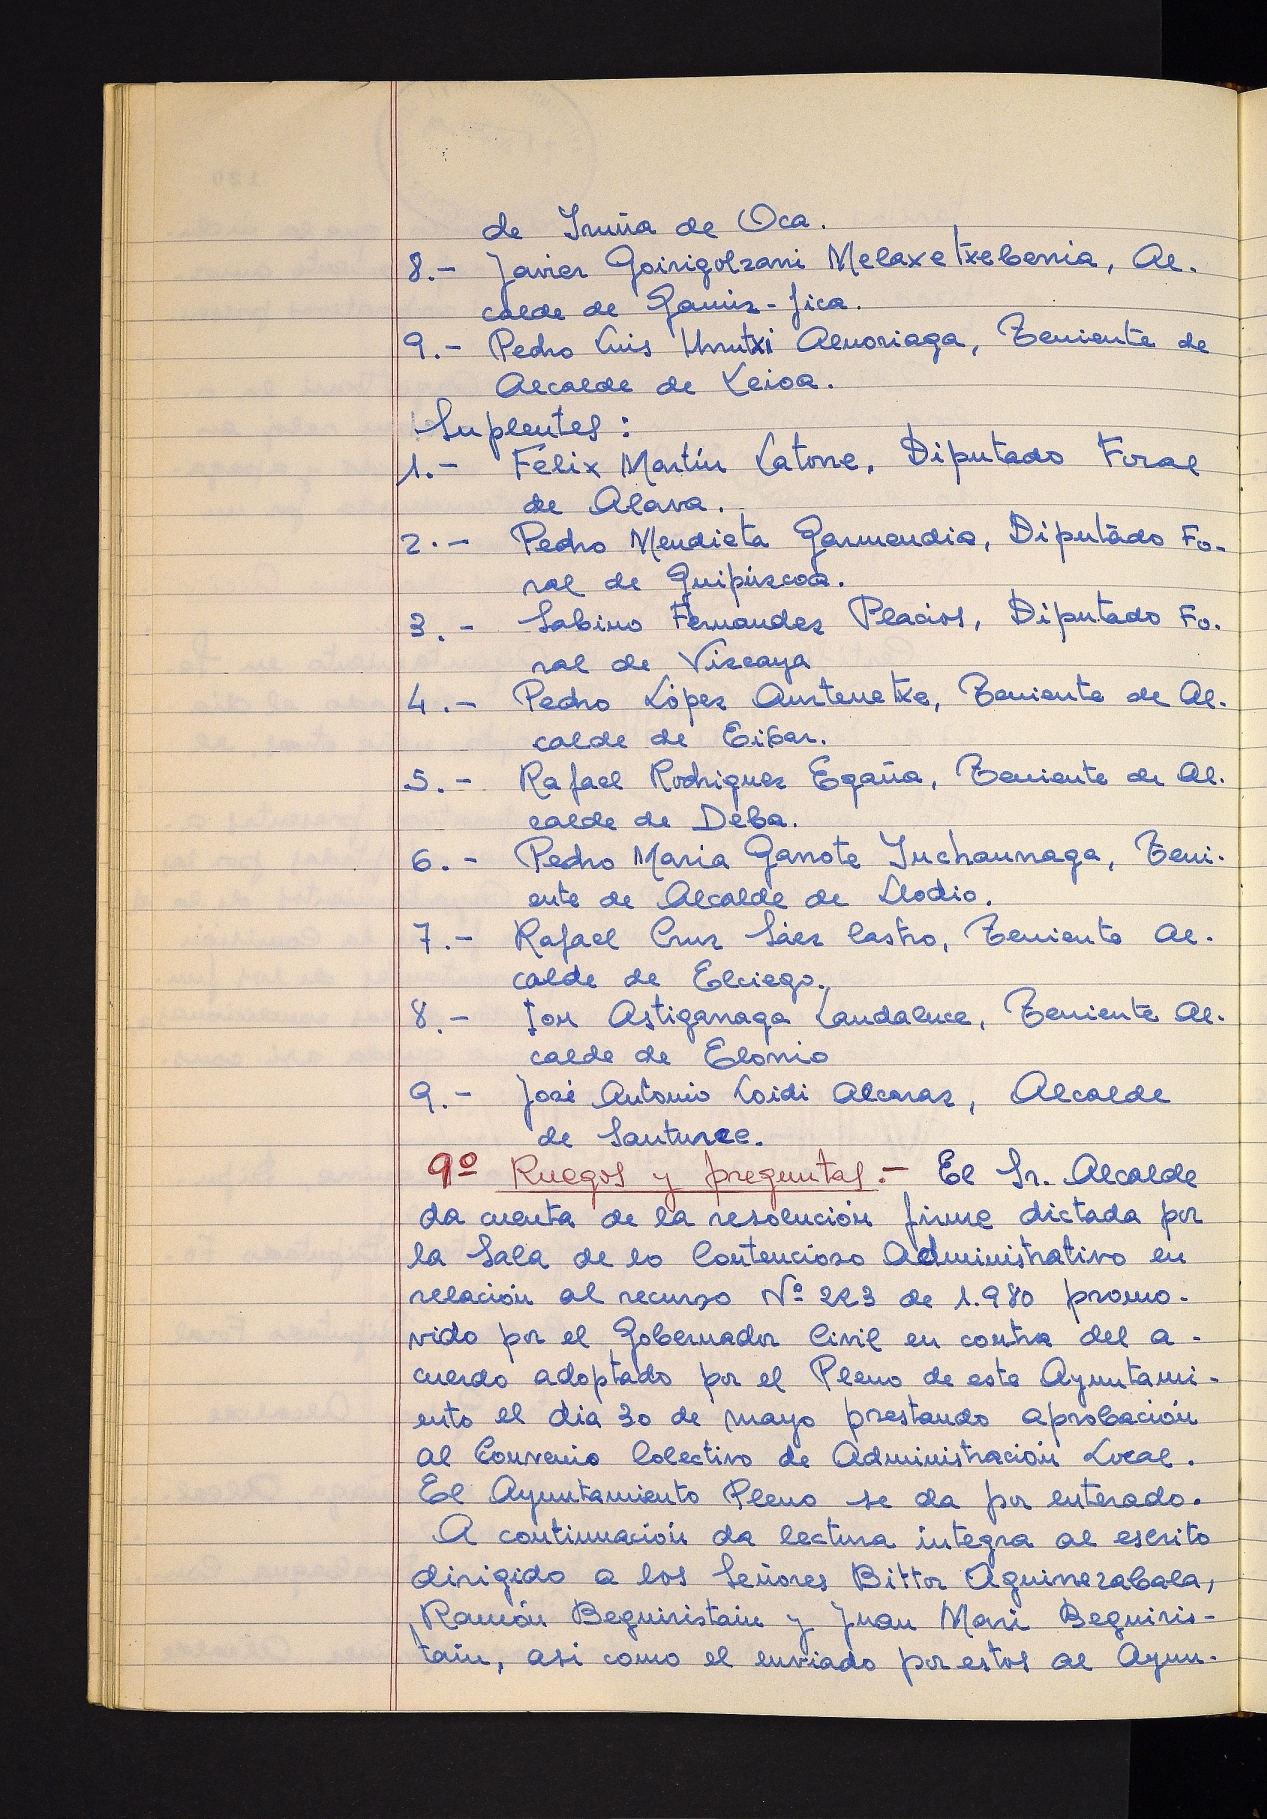 de Iruña de Oca.
8.- Javier Goirigolzarri Melaxetxebarria, Al-
calde de Gamiz-Fica.
9.- Pedro Luis Urrutxi Almoriaga, Teniente de
Alcalde de Leioa.
Suplentes:
1.- Félix Martín Latorre, Diputado Foral
de Alava.
2.- Pedro Mendieta Garmendia, Diputado Fo-
ral de Guipúzcoa.
3.- Sabino Fernandez Placios, Diputado Fo-
ral de Vizcaya
4.- Pedro López Aurtenetxe, Teniente de Al-
calde de Eibar.
5.- Rafael Rodriguez Egaña, Teniente de Al-
calde de Deba.
6.- Pedro Maria Garrote Inchaurraga, Teni-
ente de Alcalde de Llodio.
7.- Rafael Cruz Sáez Castro, Teniente Al-
calde de Elciego.
8.- Jon Astigarraga Landaluce, Teniente Al-
calde de Elorrio
9.- José Antonio Loidi Alcaraz, Alcalde
de Santurce.
9º Ruegos y preguntas.- El Sr. Alcalde
da cuenta de la resolución firme dictada por
la Sala de lo Contencioso Administrativo en
relación al recurso Nº 223 de 1.980 promo-
vido por el Gobernador Civil en contra del a-
cuerdo adoptado por el Pleno de este Ayuntami-
ento el dia 30 de mayo prestando aprobación
al Convenio Colectivo de Administración Local.
El Ayuntamiento Pleno se da por enterado.
A continuación da lectura integra al escrito
dirigido a los Señores Bittor Aguirrezabala,
Ramón Beguiristain y Juan Mari Beguiris-
tain, asi como el enviado por estos al Ayun-